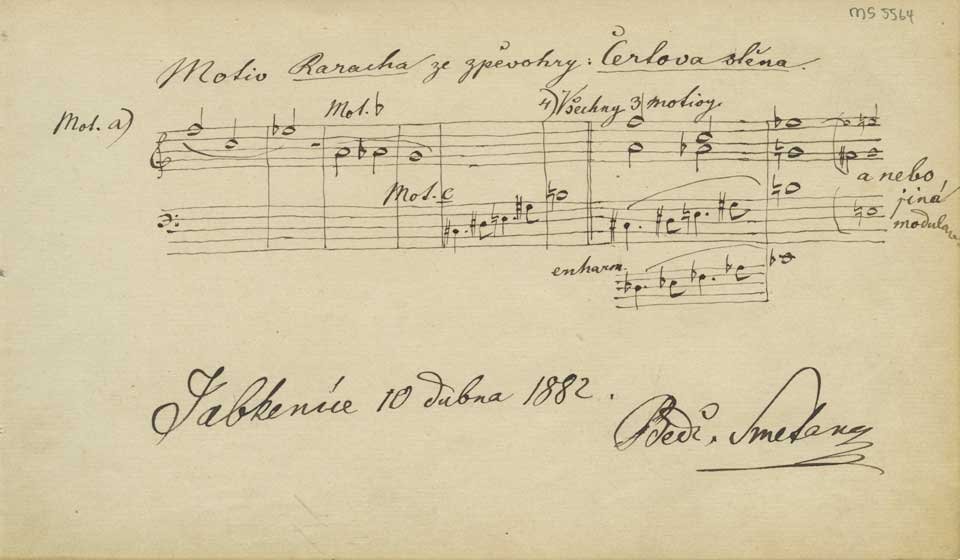 MS 5564
Motiv Raracha ze zpěvohry: Čertova stěna.
Mot. a)
Mot. b
4) Všechny 3 motivy.
Mot. c
a nebo
jiná
modulace
enharm.
Jabkenice 10 dubna 1882.
Bedř. Smetana